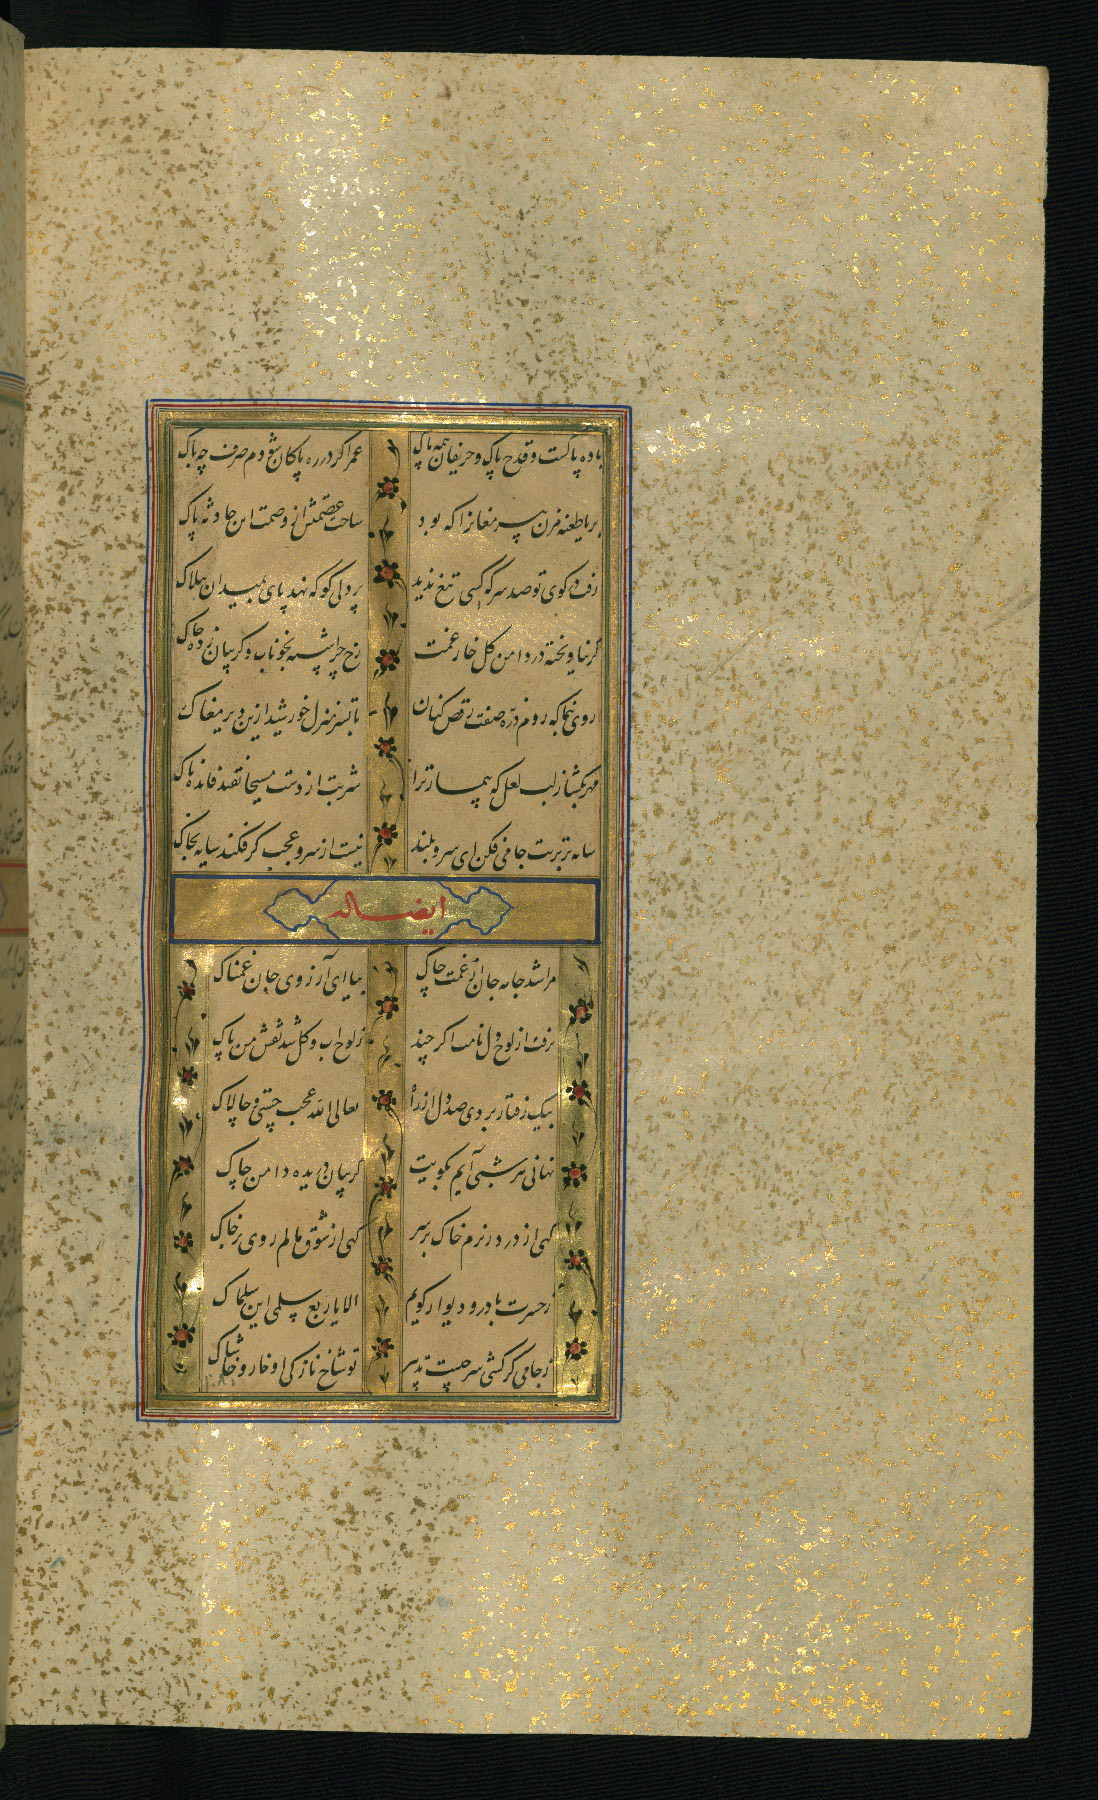 باده پاکست و قدح پاک و حریفان همه پاک عمر اگر در ره پاکان شودم صرف چه باک
بر ما طعنه مزن پیر مغانرا که بود ساحت عصمتش از وصمت این حادثه پاک
رفت در کوی تو صد سر که کسی تیغ ندید پر دلی کو که نهد پای بمیدان هلاک
گر نیاویخته در دامن گل خار غمت رخ چرا شسته بخوناب و گریبان زده چاک
روی بنما که روم ذره صفت رقص کنان تا بسر منزل خورشید ازین دیر مغاک
مهر بگشا ز لب لعل که بیمار ترا شربت از دست مسیحا نفتد فایده ناک
سایه بر تربت جامی فکن ای سرو بلند نیست از سرو عجب گر فکند سایه بخاک
ایضا له
مرا شد جامه جان از غمت چاک بیا ای آرزوی جان غمناک
نرفت از لوح دل نامت اگر چند ز لوح آب و گل شد نقش من پاک
بیک رفتار بردی صد دل از راه تعالی الله عجب چستی و چالاک
نهانی هر شبی آیم بکویت گریبان دریده دامن چاک
گهی از درد ریزم خاک بر سر گهی از شوق مالم روی بر خاک
ز حسرت با در و دیوار گویم الا یا ربع سلمی این سلماک
ز جامی گر کشی سر چیست تدبیر تو شاخ نازکی او خار و خاشاک